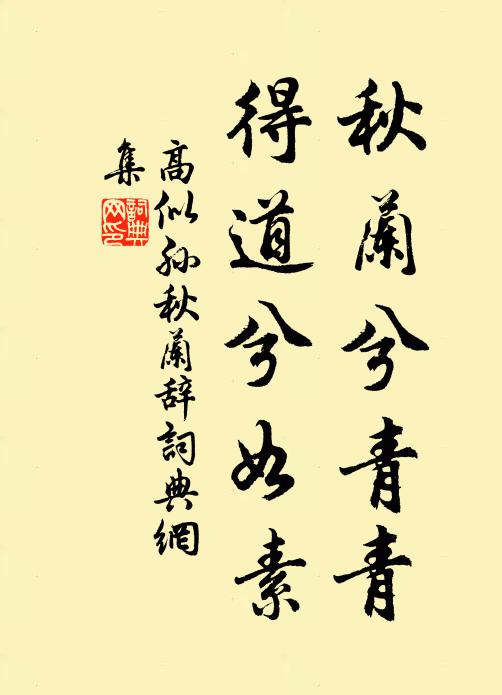 秋蘭兮青青
得道兮如素
高似孫秋蘭辞詞典網
集
詞典
网印